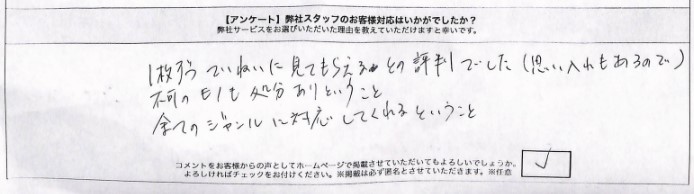 【アンケート】弊社スタッフのお客様対応はいかがでしたか？
弊社サービスをお選びいただいた理由を教えていただけますと幸いです。
1枚ずつ ていねいに 見てもらえる との 評判でした（思い入れもあるので）
不可のモノも 処分ありということ
全てのジャンルに対応してくれるということ
コメントをお客様からの声としてホームページで掲載させていただいてもよろしいでしょうか。
よろしければチェックをお付けください。※掲載は必ず匿名とさせていただきます。※任意